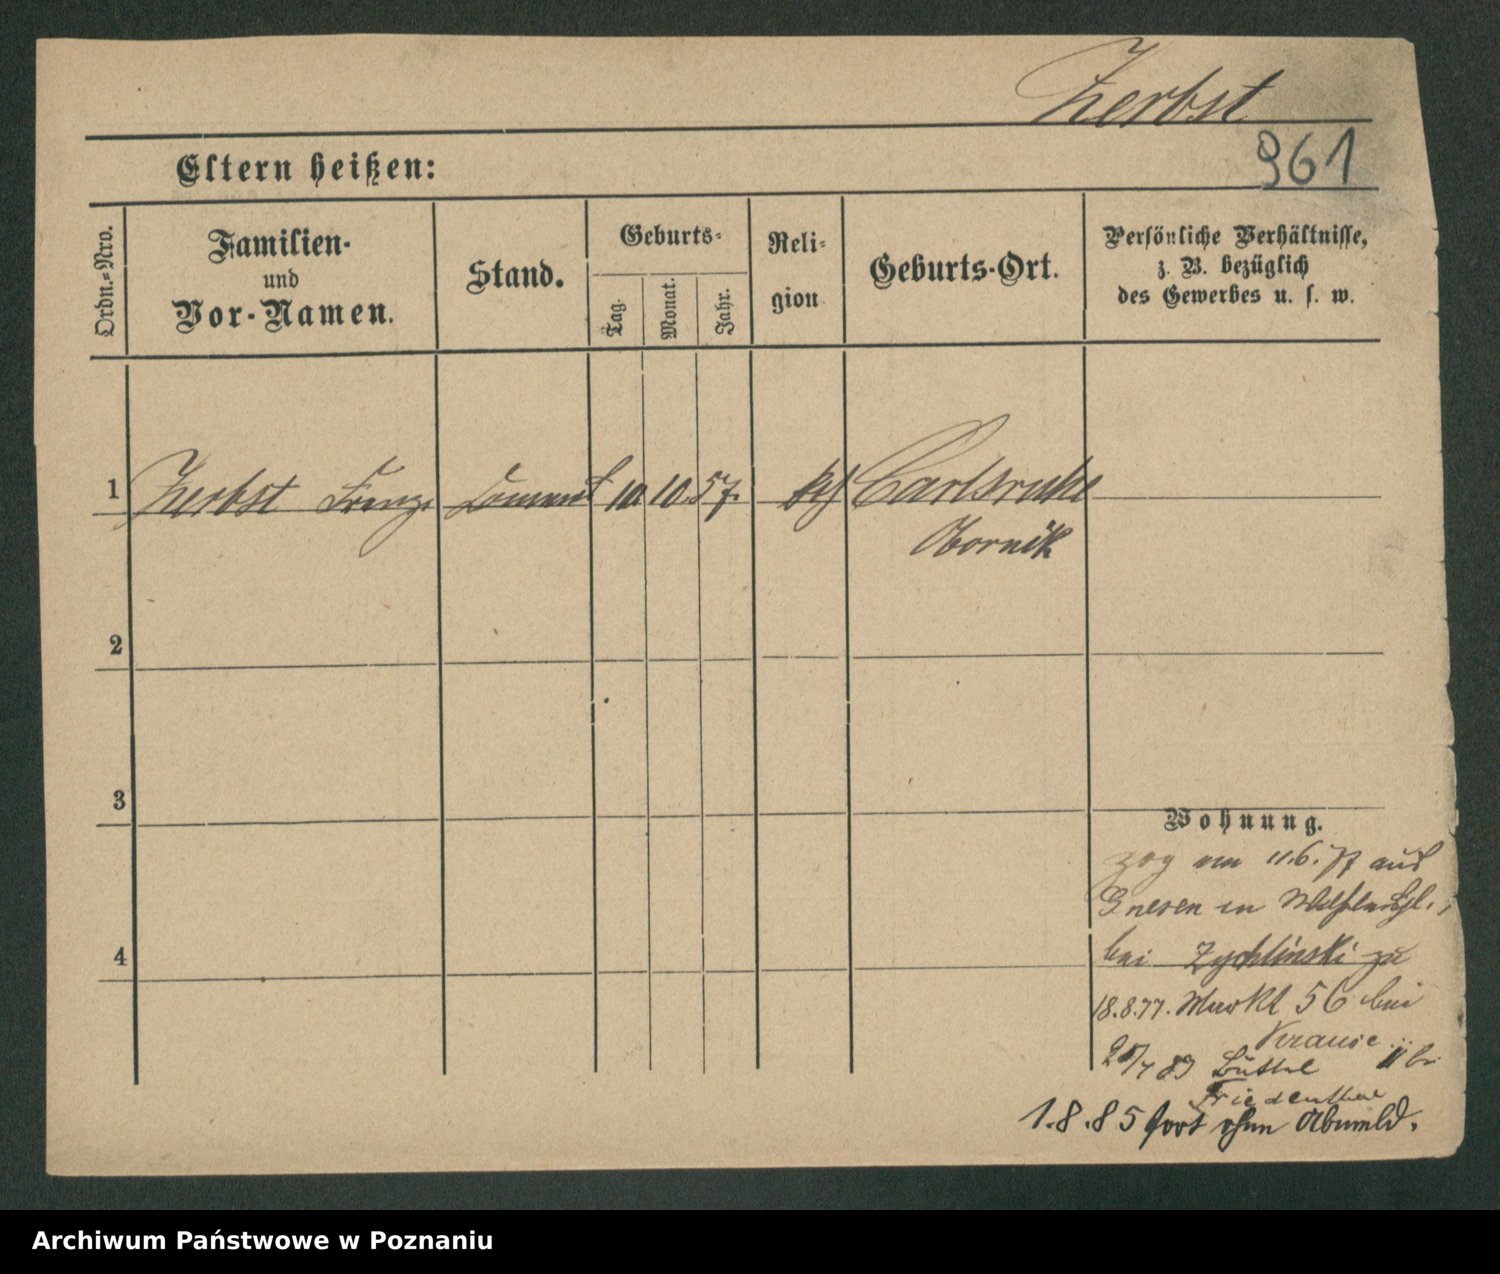 Zerbst
961
Eltern heißen:
Ordn.-Nro.
Familien-
und
Vor-Namen.
Stand.
Geburts-
Tag.
Monat.
Jahr.
Reli-
gion
Geburts-Ort.
Persönliche Verhältnisse,
z. B. bezüglich
des Gewerbes u. s. w.
1 Zerbst Franz 10. 10. 57. Carlsruhe
Obornik
2
3
Wohnung.
zog am 11.6.77 aus
Gnesen in
4
bei Zychlinski zu
18.8.77. Markt 56 bei
Krause
83 Büttel 11 b.
Friedenthal
1.8.85 fort ohne Abmeld.
Archiwum Państwowe w Poznaniu